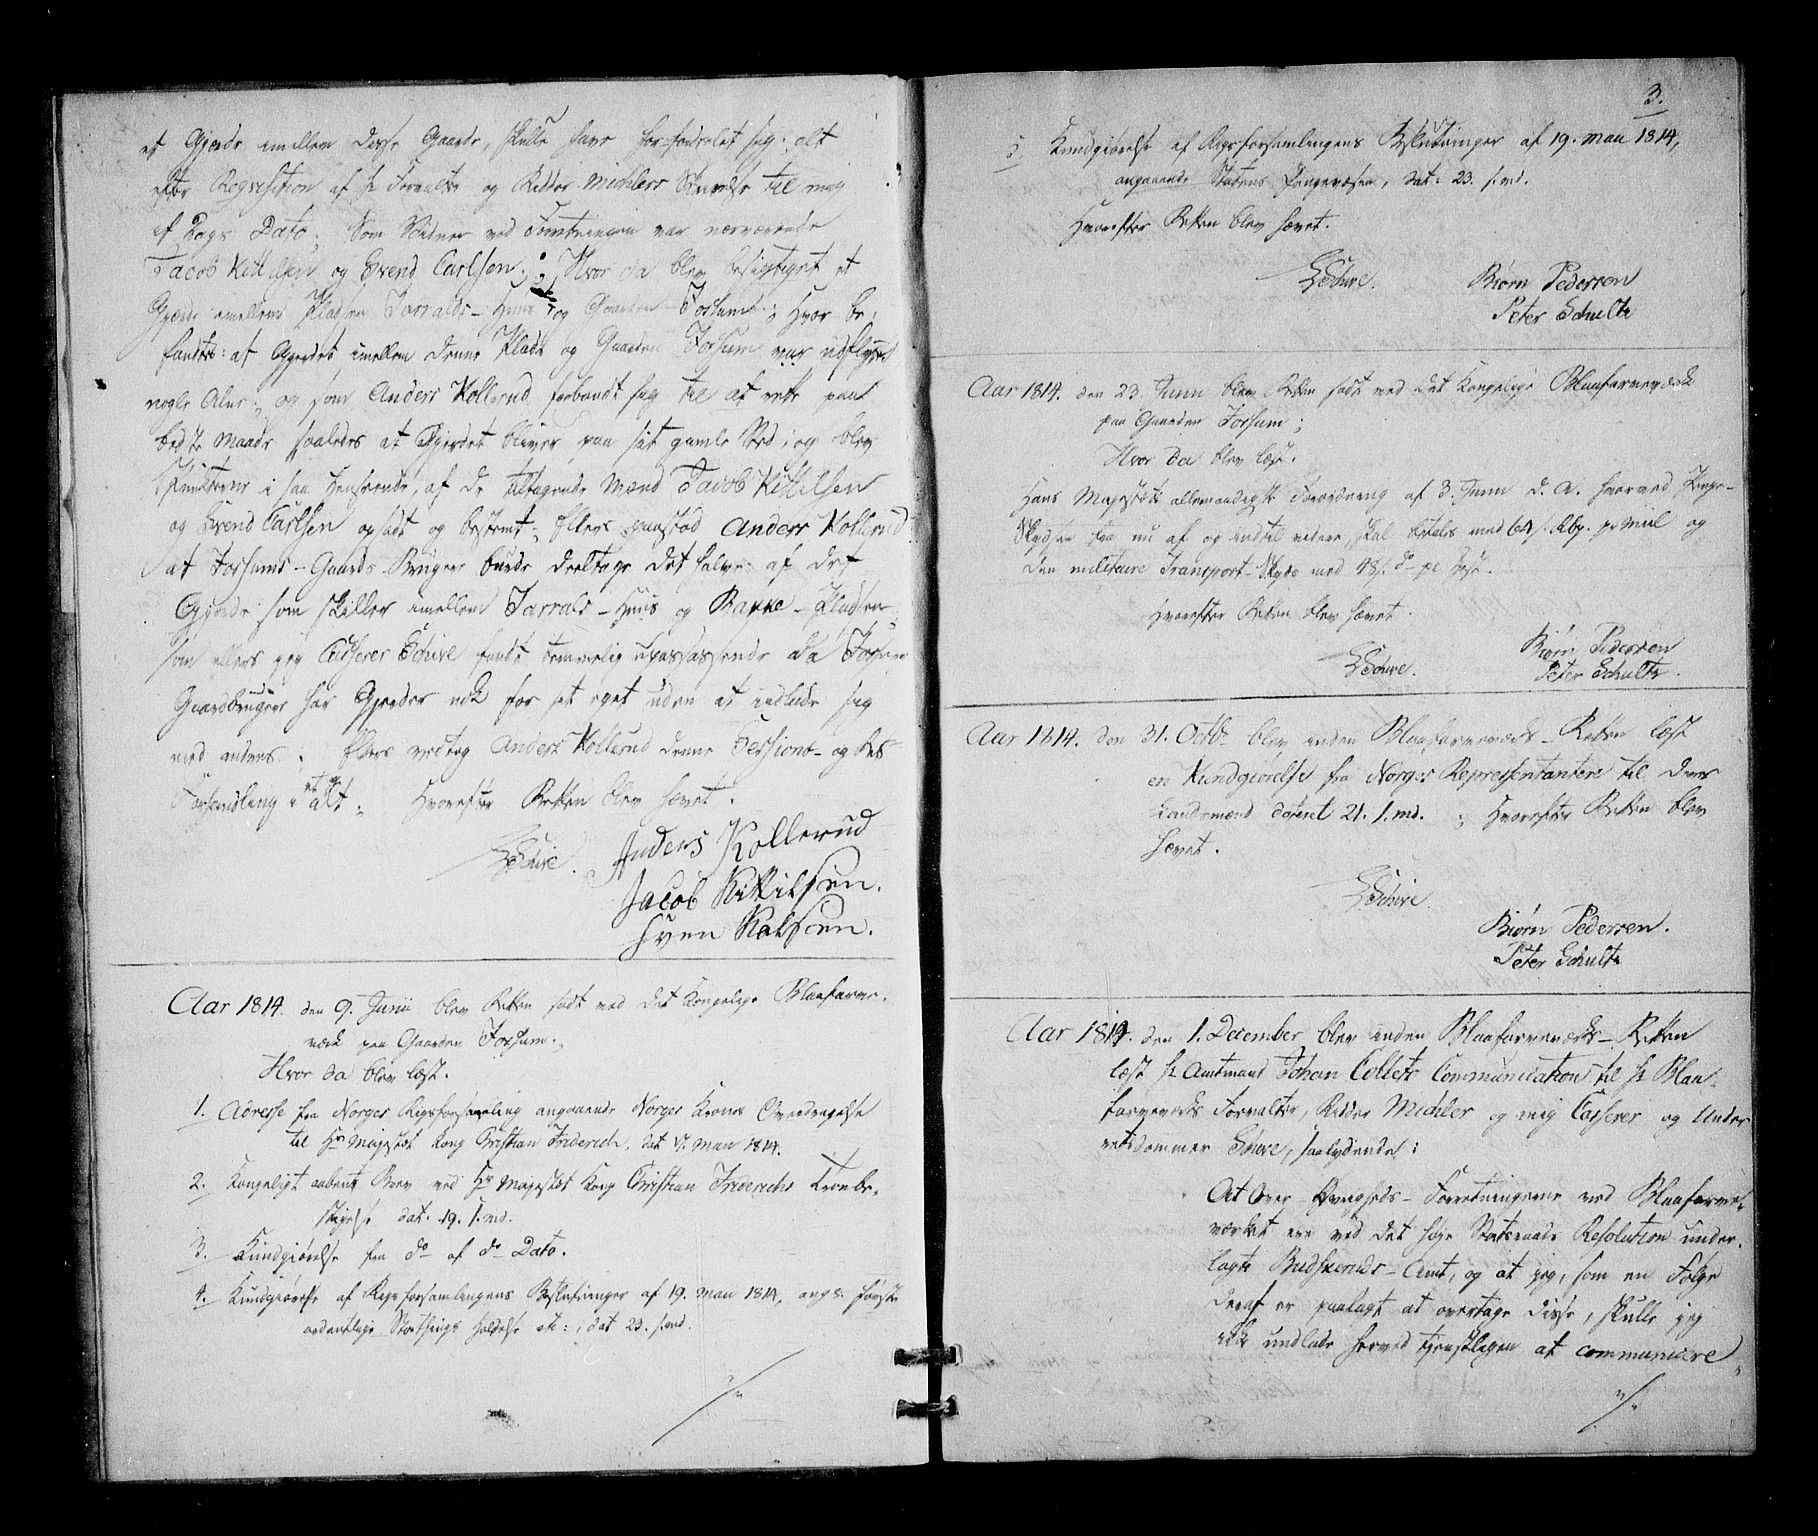 et Gjærde imellem disse Gaarde, skulle have forfandslet sig; alt
efter Reqvisition af Hr Forvalter og Ridder Michlers Skrivelse til mig
af Dags Dato; Som Vidner ved Forretningen var nærværende
Jacob Kittilsen og Svend Carlsen; Hvor da blev besigtiget et
Gjærde imellem Pladsen Jarralds-Huus og Gaarden Fossum; Hvor be-
fandtes: at Gjerdet imellem denne Plads og Gaarden Fossum var udflyttet
nogle Alne; og som Anders Kollerud forbandt sig til at rette paa
bedste Maade saaledes at Gjerdet bliver paa sit gamle Sted; og blev
i saa Henseende, af de tiltagende Mænd Jacob Kittilsen
og Svend Carlsen opsadt og bestemt; Ellers paastod Anders Kollerud
at Fossums-Gaards Bruger burde deeltage det halve af det
Gjærde som skiller imellem Jarralds-Huus og Bakke-Pladsen
som ellers jeg Casserer Schive fandt temmelig upassende da Fossum
Gaardbruger har Gjerder nok for sit eget uden at indlade sig
med andres. Ellers vedtog Anders Kollerud denne Sessions- og
Forhandling i et og alt; Hvorefter Retten blev hævet.
Schive. Anders Kollerud
Jacob Kittilsen.
Sven Kalsen.
Aar 1814. den 9. Junii blev Retten sadt ved det Kongelige Blaafarve-
værk paa Gaarden Fossum;
Hvor da blev læst.
1. Adresse fra Norges Rigsforsamling angaaende Norges Krones Overdragelse
til Hs Majestæt Kong Christian Friderich, dat. Maii 1814.
2. Kongeligt aabent Brev ved Hs Majestæt Kong Christian Friderichs Tronbe-
stigelse dat. 19. s. md.
3. Kundgiørelse fra do af do Dato.
4. Kundgiørelse af Rigsforsamlingens Beslutninger af 19. Maii 1814, ang. første
ordentlige Storthings Holdelse etc:, dat 23. s. md.
3.
5. Kundgiørelse af Rigsforsamlingens Beslutninger af 19. Maii 1814,
angaaende Statens Pengevæsen, dat: 23. s. md.
Hvorefter Retten blev hævet.
Schive. Biørn Pedersen
Peter Schultz
Aar 1814. den 23. Junii blev Retten sadt ved det Kongelige Blaafarveværk
paa Gaarden Fossum;
Hvor da blev læst.
Hans Majestæts allernaadigste Forordning af 3. Junii d. A. hvorved
Skydsen fra nu af og indtil videre skal betales med 64 s. Rbp. pr Miil og
den militaire Transport-Skyds med 48 s. do pr Hest.
Hvorefter Retten blev hævet.
Schive. Biørn Pedersen
Peter Schultz.
Aar 1814. den 31. Octbr blev inden Blaafarveværks-Retten læst
en Kundgiørelse fra Norges Repræsentantere til deres
Landsmænd dateret 21. s. md.; Hvorefter Retten blev
hævet.
Schive. Biørn Pedersen.
Peter Schultz
Aar 1814. den 1. December blev inden Blaafarveværks-Retten
læst Hr Amtmand Johan Collets Communication til Hr Blaa-
farveværks Forvalter, Ridder Michler og mig Casserer og Under-
retsdommer Schive, saalydende:
At Over-Øvrigheds-Forretningerne ved Blaafarve-
værket ere ved det høye Statsraads Resolution under-
lagte Buskeruds-Amt, og at jeg, som en Følge
deraf er paalagt at overtage disse, skulle jeg
ikke undlade herved tjenstligen at communicere